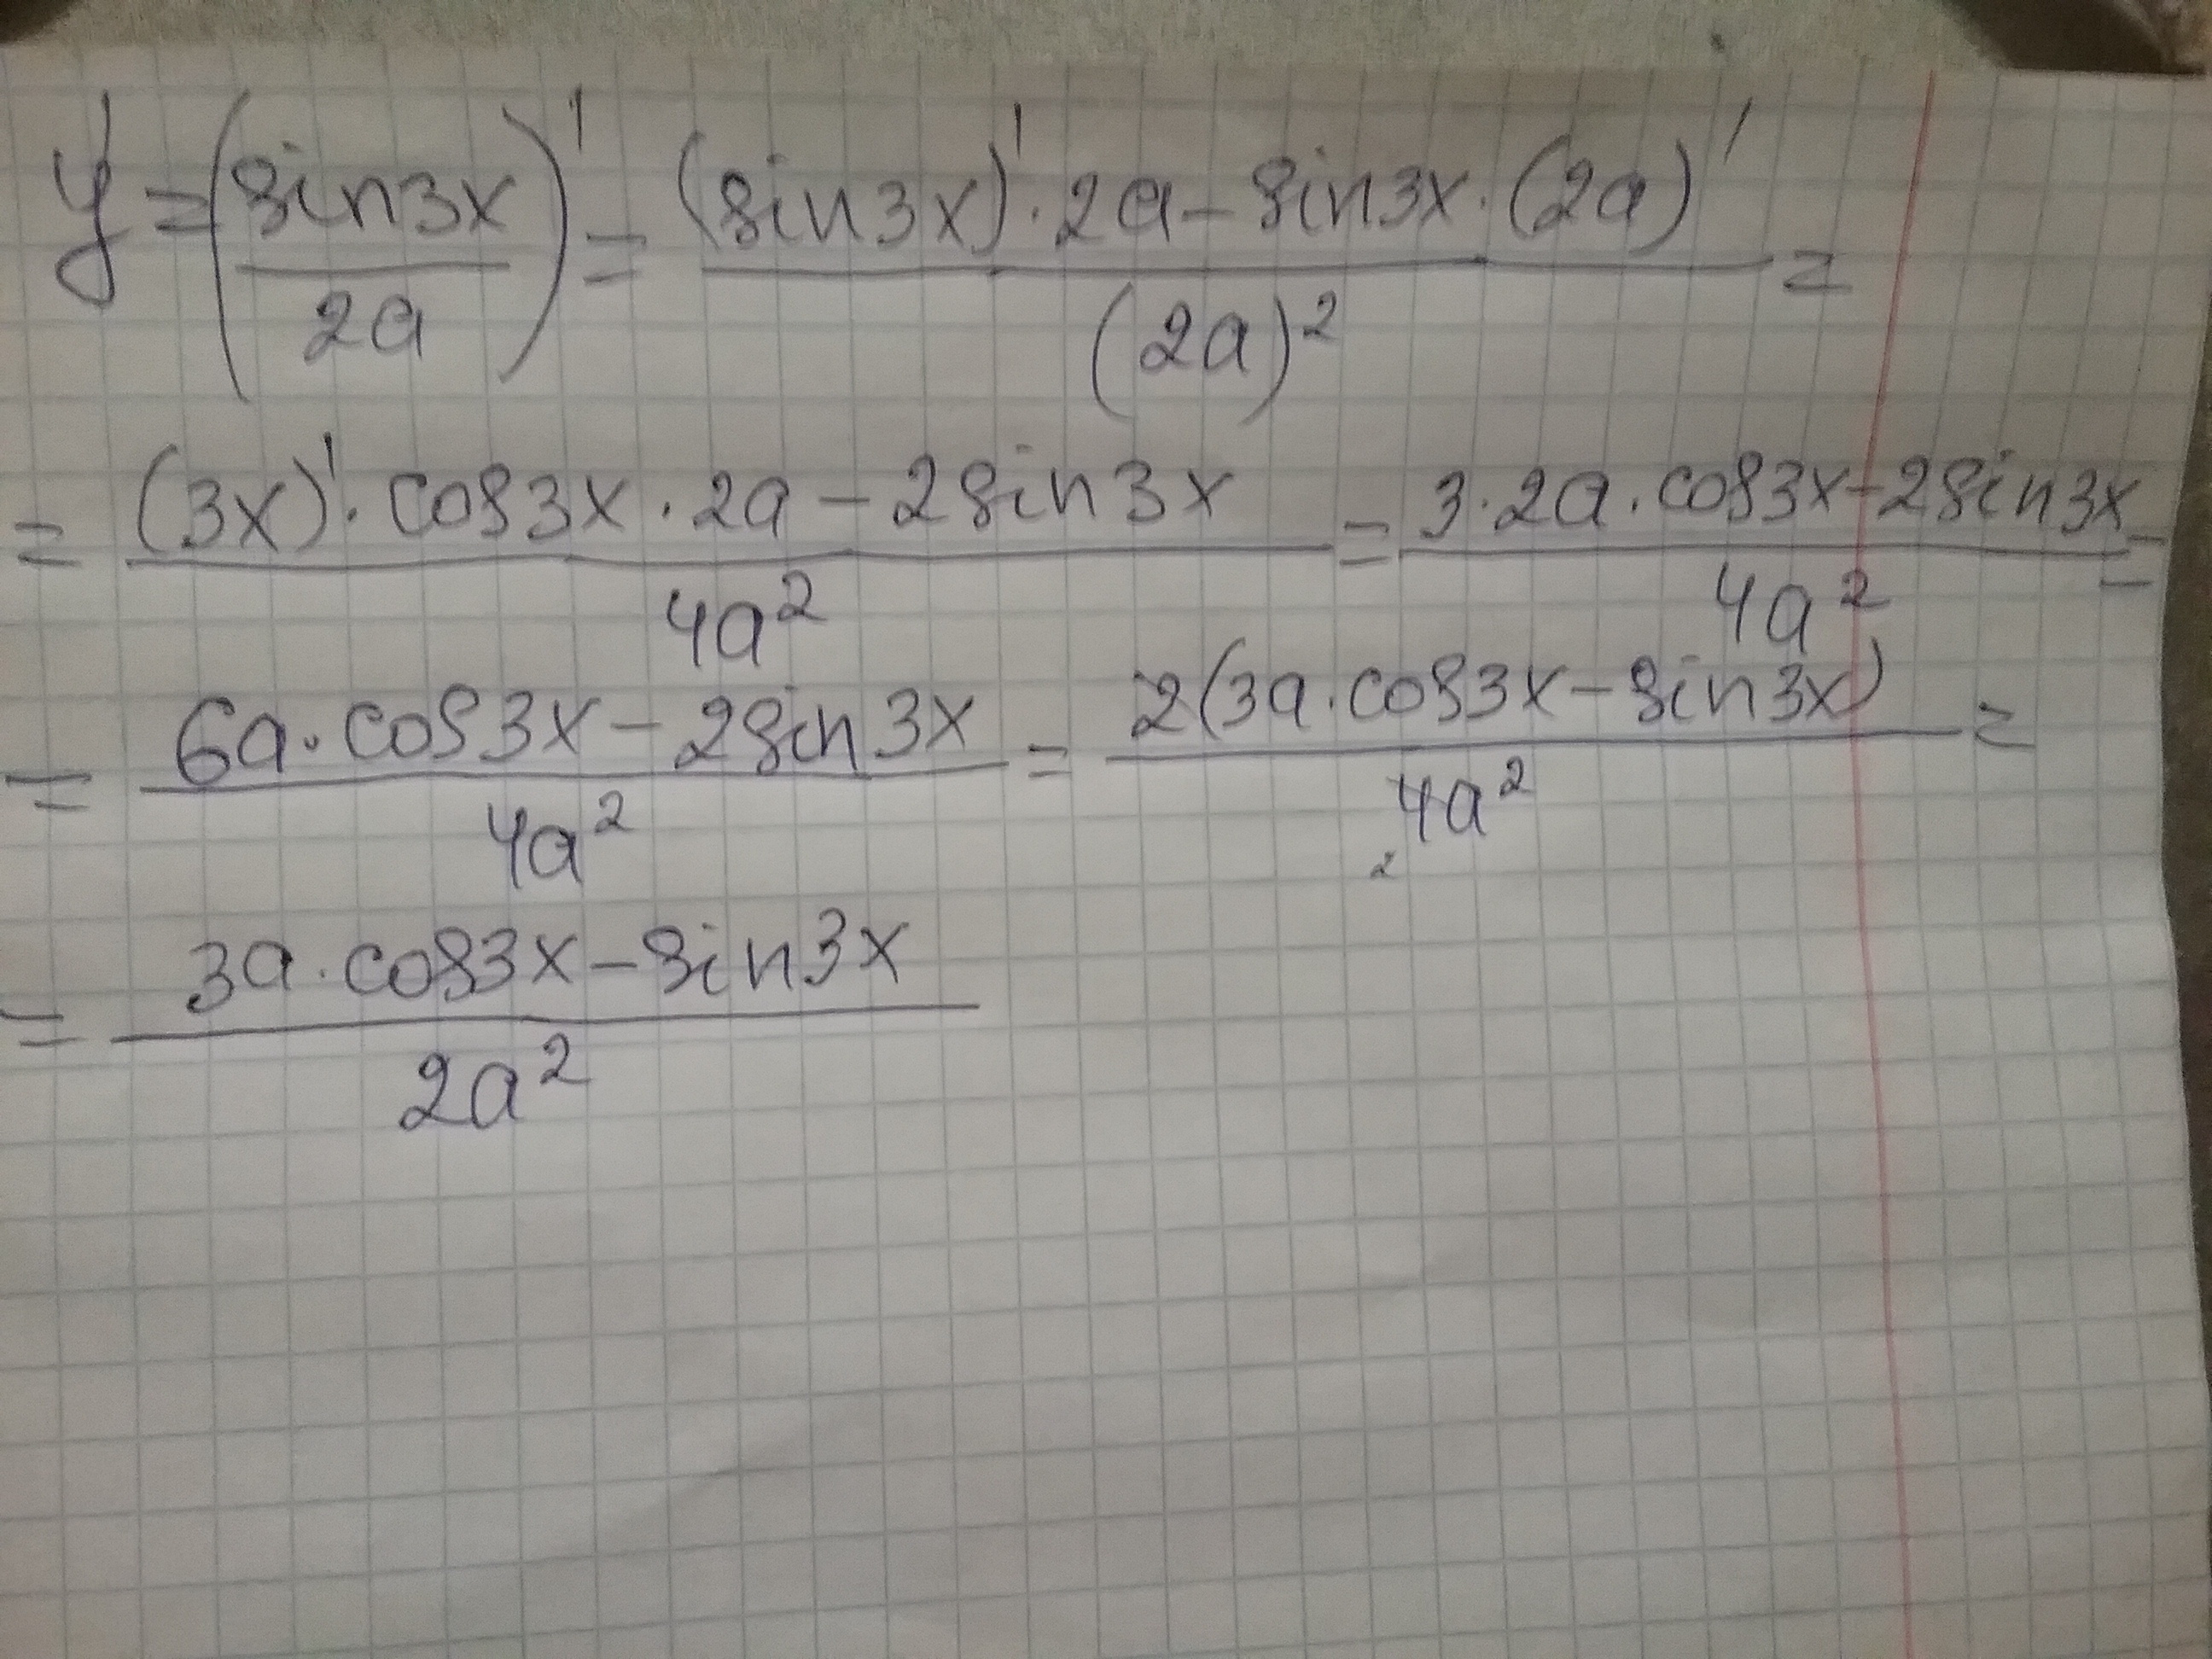 y' = (sin3x / 2a)' = ((sin3x)' · 2a - sin3x · (2a)') / (2a)² =
= ((3x)' · cos3x · 2a - 2sin3x) / 4a² = (3 · 2a · cos3x - 2sin3x) / 4a² =
= (6a · cos3x - 2sin3x) / 4a² = 2(3a · cos3x - sin3x) / 4a² =
2
= (3a · cos3x - sin3x) / 2a²